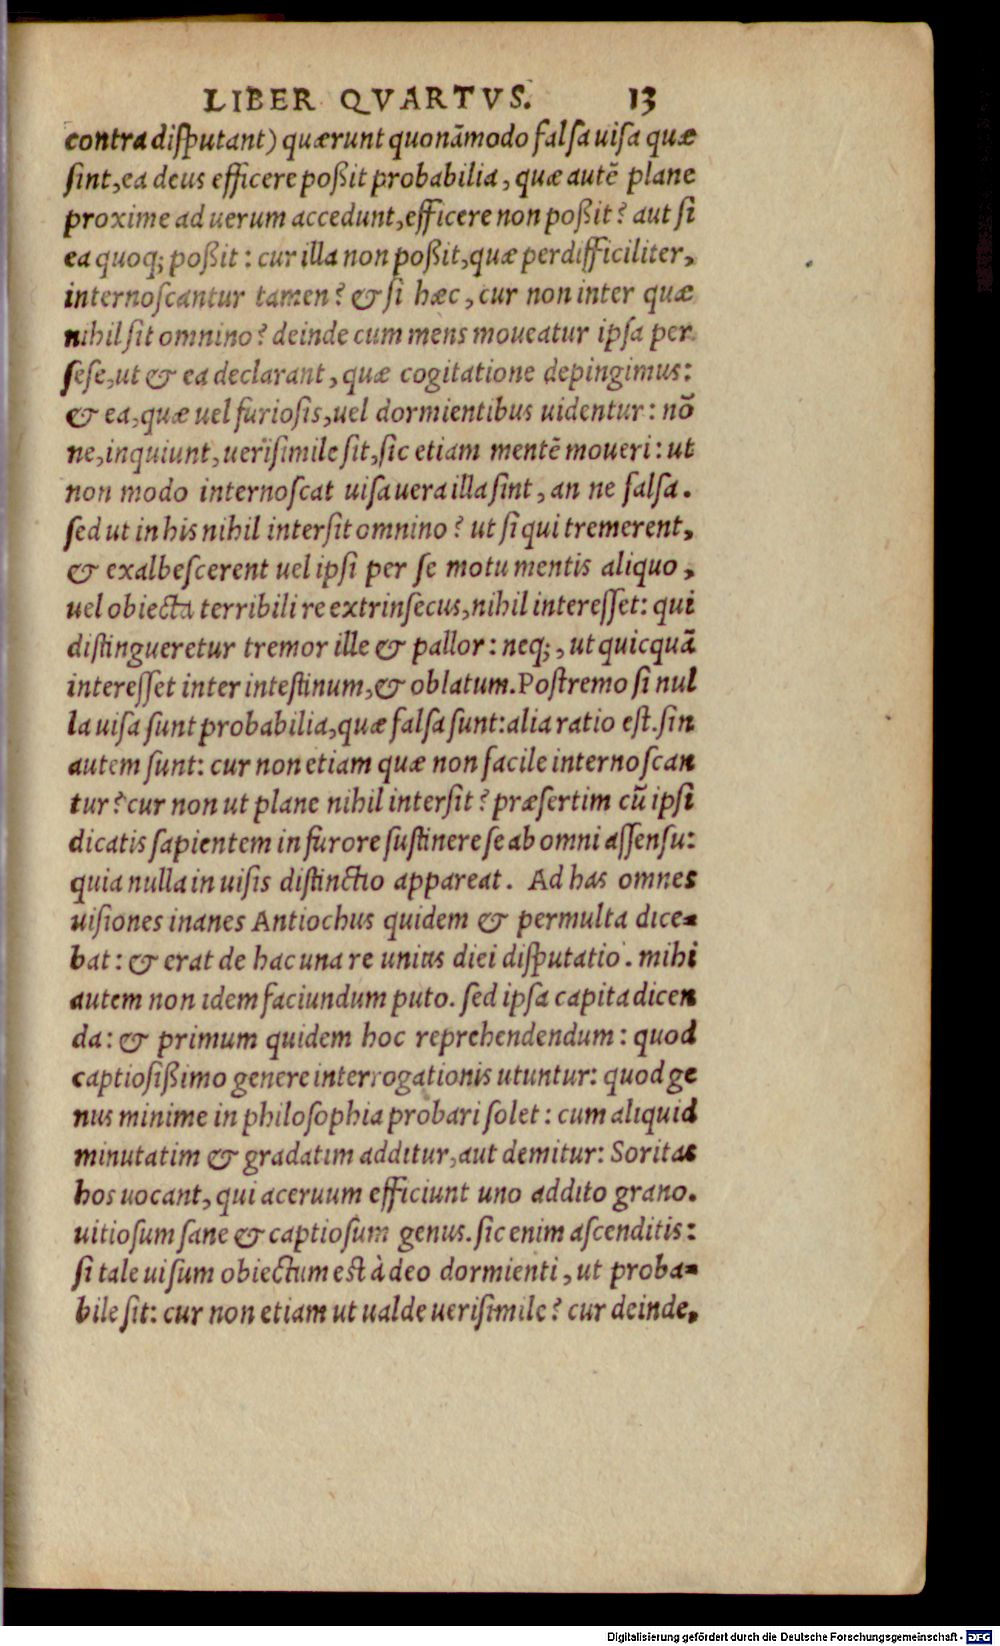 LIBER QVARTVS. 13
contra disputant) quærunt quonāmodo falsa uisa quæ
sint, ea deus efficere poßit probabilia, quæ autē plane
proxime ad uerum accedunt, efficere non poßit? aut si
ea quoq; poßit: cur illa non poßit, quæ perdifficiliter,
internoscantur tamen? & si hæc, cur non inter quæ
nihil sit omnino? deinde cum mens moueatur ipsa per
sese, ut & ea declarant, quæ cogitatione depingimus:
& ea, quæ uel furiosis, uel dormientibus uidentur: nō
ne, inquiunt, uerisimile sit, sic etiam mentē moueri: ut
non modo internoscat uisa uera illa sint, an ne falsa.
sed ut in his nihil intersit omnino? ut si qui tremerent,
& exalbescerent uel ipsi per se motu mentis aliquo,
uel obiecta terribili re extrinsecus, nihil interesset: qui
distingueretur tremor ille & pallor: neq;, ut quicquā
interesset inter intestinum, & oblatum. Postremo si nul
la uisa sunt probabilia, quæ falsa sunt: alia ratio est. sin
autem sunt: cur non etiam quæ non facile internoscan
tur? cur non ut plane nihil intersit? præsertim cū ipsi
dicatis sapientem in furore sustinere se ab omni assensu:
quia nulla in uisis distinctio appareat. Ad has omnes
uisiones inanes Antiochus quidem & permulta dice=
bat: & erat de hac una re unius diei disputatio. mihi
autem non idem faciundum puto. sed ipsa capita dicen
da: & primum quidem hoc reprehendendum: quod
captiosißimo genere interrogationis utuntur: quod ge
nus minime in philosophia probari solet: cum aliquid
minutatim & gradatim additur, aut demitur: Soritas
hos uocant, qui aceruum efficiunt uno addito grano.
uitiosum sane & captiosum genus. sic enim ascenditis:
si tale uisum obiectum est à deo dormienti, ut proba=
bile sit: cur non etiam ut ualde uerisimile? cur deinde,
Digitalisierung gefördert durch die Deutsche Forschungsgemeinschaft - DFG